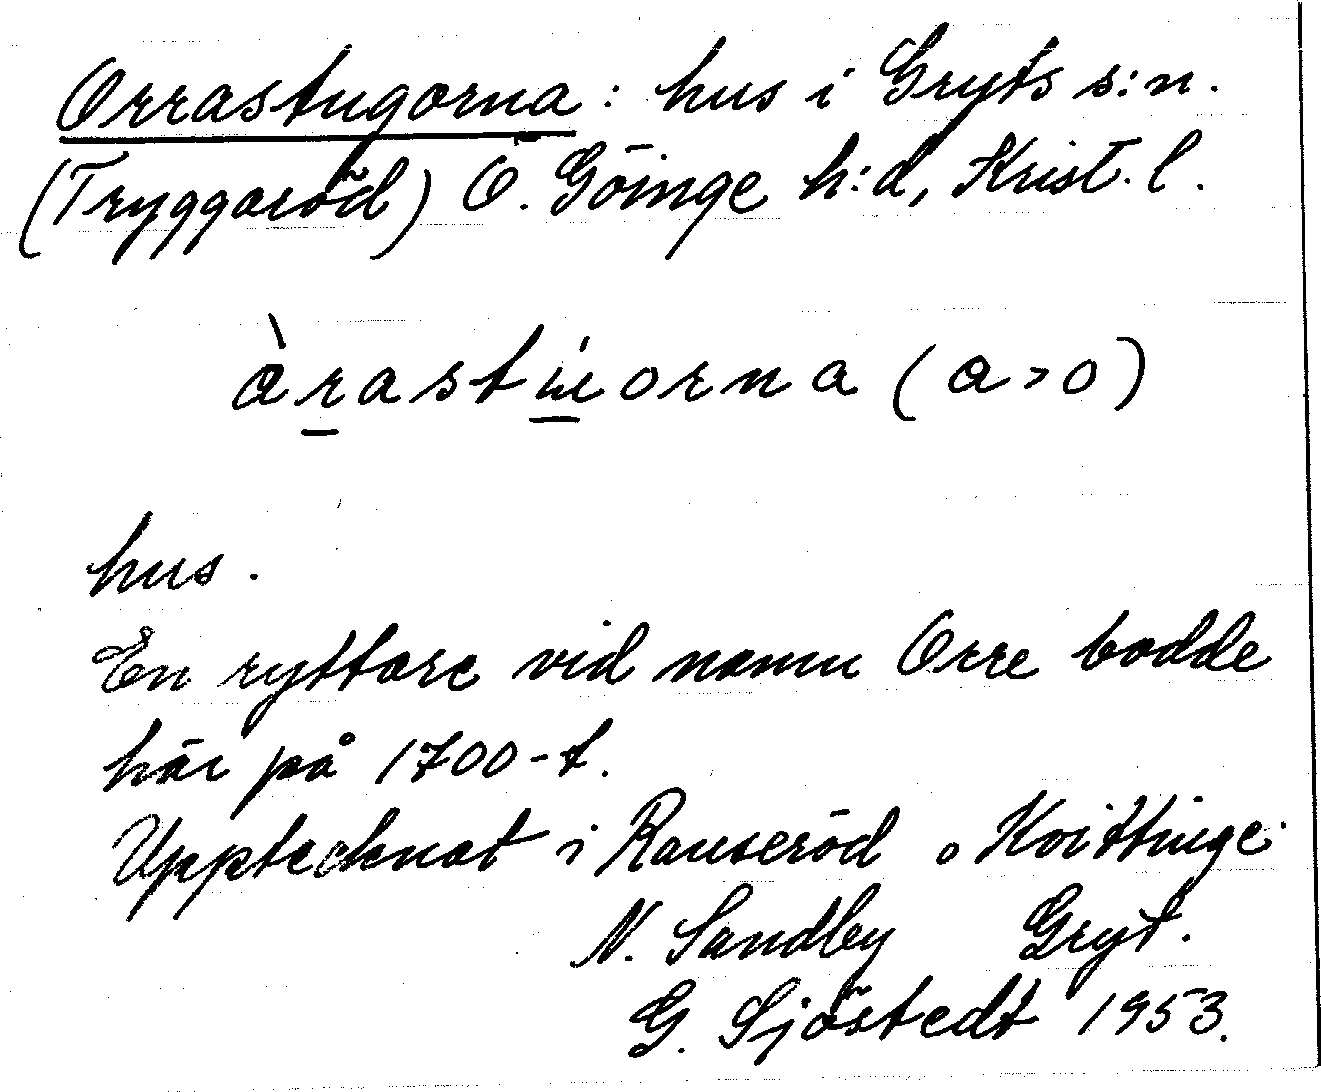 Orrastugorna : hus i Gryts s:n.
(Tryggaröd) Ö. Göinge h:d, Krist. l.
àrastúorna (a>o)
hus.
En ryttare vid namn Orre bodde
här på 1700-t.
Upptecknat i Rauseröd o Kvittinge
N. Sandby Gryt.
G. Sjöstedt 1953.